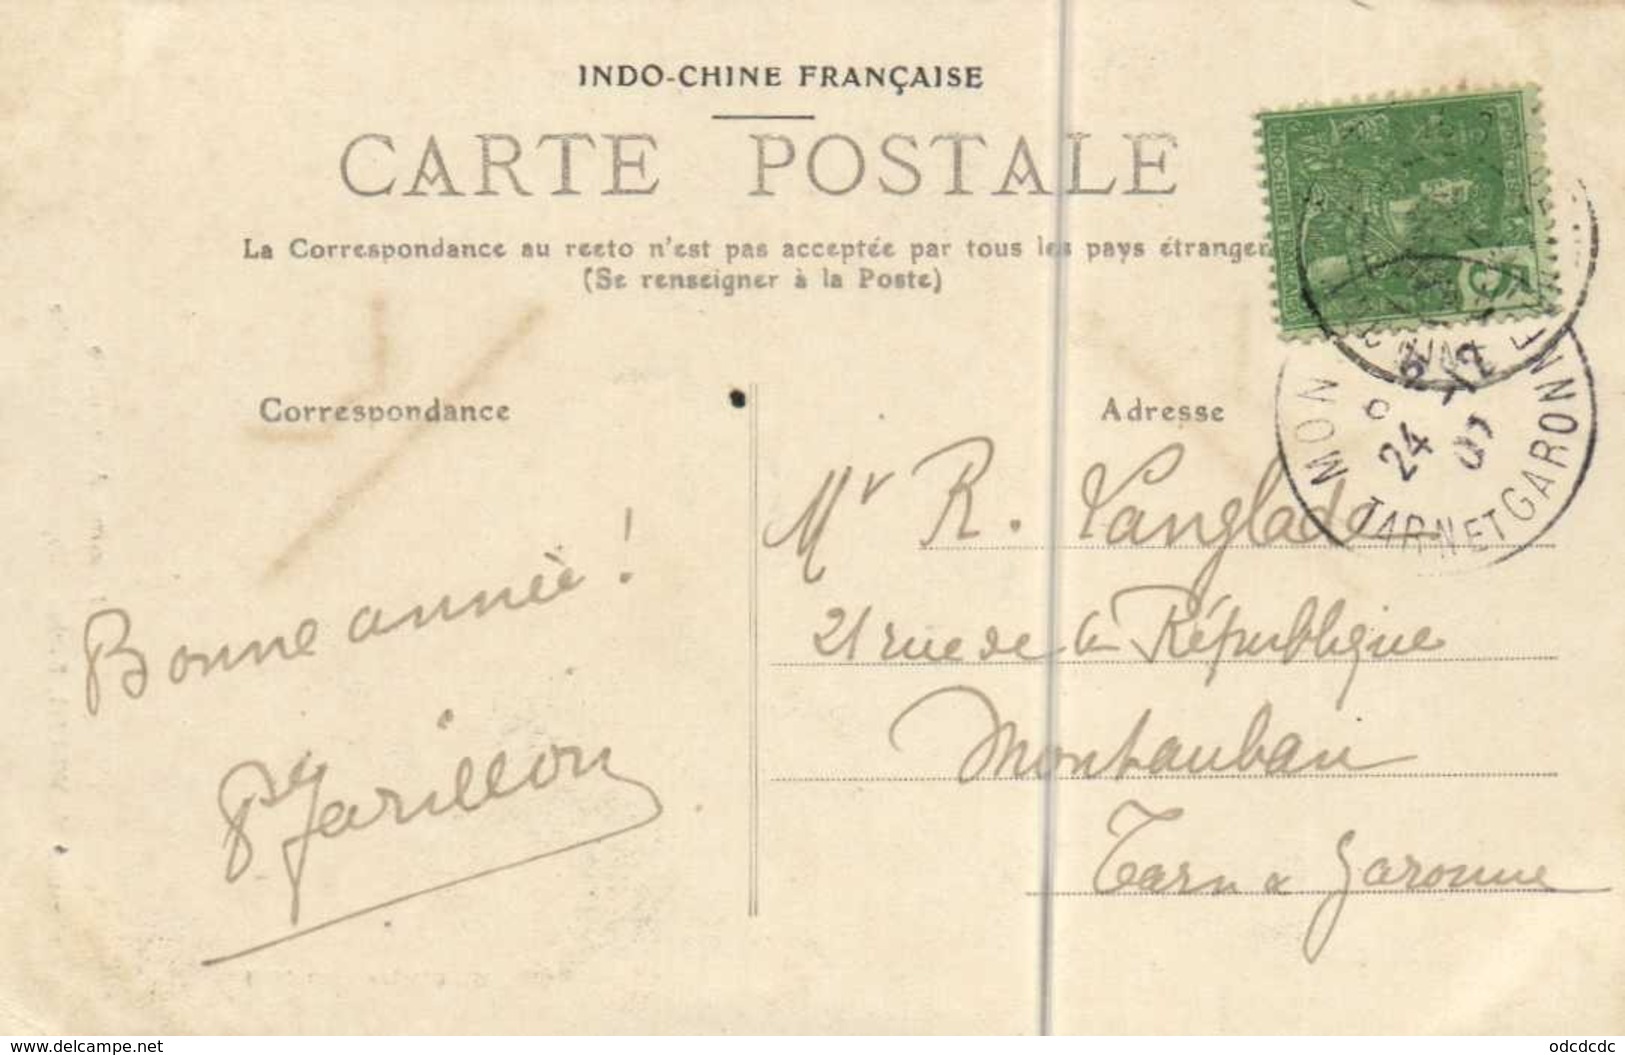 INDO-CHINE FRANÇAISE
CARTE POSTALE
La Correspondance au recto n'est pas acceptée par tous les pays étrangers
(Se renseigner à la Poste)
Correspondance
Adresse
MON
24 12
TARN ET GARONNE
Bonne année !
Jarillon
Mr R. Langlade
21 rue de la République
Montauban
Tarn & Garonne
www.delcampe.net
odcdcdc